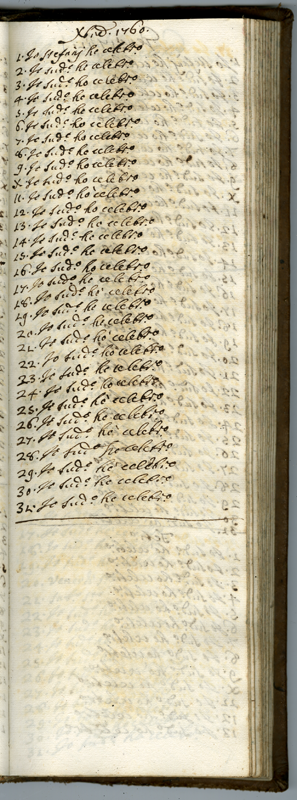 Xb.e 1760.
1. Io Stefanij ho celebro
2. Io sud.o ho celebro
3. Io sud.o ho celebro
4. Io sud.o ho celebro
5. Io sud.o ho celebro
6. Io sud.o ho celebro
7. Io sud.o ho celebro
8. Io sud.o ho celebro
9. Io sud.o ho celebro
X. Io sud.o ho celebro
11. Io sud.o ho celebro
12. Io sud.o ho celebro
13. Io sud.o ho celebro
14. Io sud.o ho celebro
15. Io sud.o ho celebro
16. Io sud.o ho celebro
17. Io sud.o ho celebro
18. Io sud.o ho celebro
19. Io sud.o ho celebro
20. Io sud.o ho celebro
21. Io sud.o ho celebro
22. Io sud.o ho celebro
23. Io sud.o ho celebro
24. Io sud.o ho celebro
25. Io sud.o ho celebro
26. Io sud.o ho celebro
27. Io sud.o ho celebro
28. Io sud.o ho celebro
29. Io sud.o ho celebro
30. Io sud.o ho celebro
31. Io sud.o ho celebro